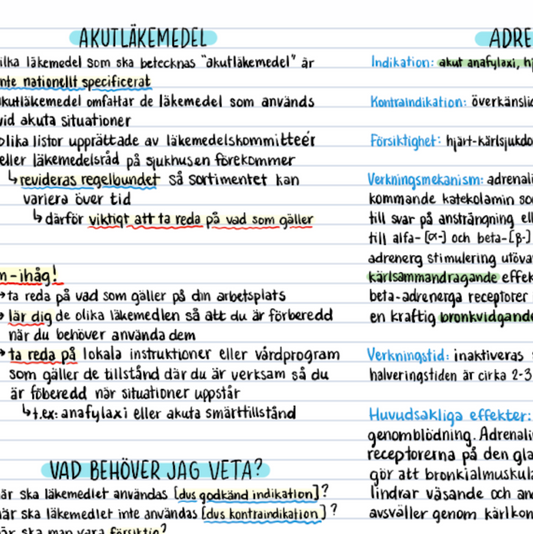 AKUTLÄKEMEDEL
ilka läkemedel som ska betecknas "akutläkemedel" är
nte nationellt specificerat
kutläkemedel omfattar de läkemedel som används
vid akuta situationer
olika listor upprättade av läkemedelskommittéer
eller läkemedelsråd på sjukhusen förekommer
↳ revideras regelbundet så sortimentet kan
variera över tid
↳ därför viktigt att ta reda på vad som gäller
m-ihåg!
→ ta reda på vad som gäller på din arbetsplats
→ lär dig de olika läkemedlen så att du är förberedd
när du behöver använda dem
→ ta reda på lokala instruktioner eller vårdprogram
som gäller de tillstånd där du är verksam så du
är föberedd när situationer uppstår
↳ t.ex: anafylaxi eller akuta smärttillstånd
VAD BEHÖVER JAG VETA?
när ska läkemedlet användas [dvs godkänd indikation]?
när ska läkemedlet inte användas [dvs kontraindikation]?
när ska man vara försiktig?
ADRE
Indikation: akut anafylaxi, hj
Kontraindikation: överkänslig
Försiktighet: hjärt-kärlsjukdo
Verkningsmekanism: adrenali
kommande katekolamin so
till svar på ansträngning ell
till alfa- [α-] och beta- [β-]
adrenerg stimulering utöva
kärlsammandragande effek
beta-adrenerga receptorer
en kraftig bronkvidgande
Verkningstid: inaktiveras
halveringstiden är cirka 2-3
Huvudsakliga effekter:
genomblödning. Adrenali
receptorerna på den gla
gör att bronkialmuskula
lindrar väsande och an
avsväller genom kärlkon